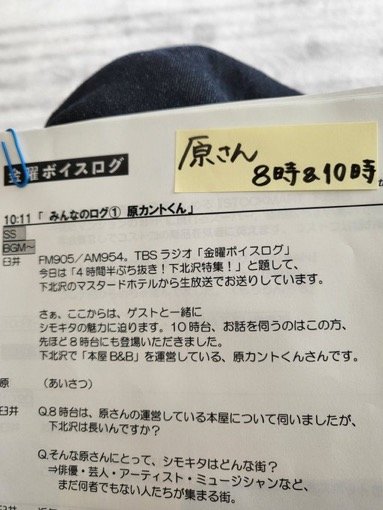 金曜ボイスログ
原さん
8時&10時
10:11「 みんなのログ① 原カントくん」
SS
BGM～
臼井 FM905／AM954。TBSラジオ「金曜ボイスログ」
今日は「4時間半ぶち抜き！下北沢特集！」と題して、
下北沢のマスタードホテルから生放送でお送りしています。
さぁ、ここからは、ゲストと一緒に
シモキタの魅力に迫ります。10時台、お話を伺うのはこの方、
先ほど8時台にも登場いただきました。
下北沢で「本屋B&B」を運営している、原カントくんさんです。
原 （あいさつ）
臼井 Q.8時台は、原さんの運営している本屋について伺いましたが、
下北沢は長いんですか？
Q.そんな原さんにとって、シモキタはどんな街？
⇒俳優・芸人・アーティスト・ミュージシャンなど、
まだ何者でもない人たちが集まる街。